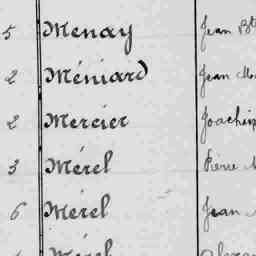 5 Menay Jean Bte
2 Méniard Jean
2 Mercier Joachim
3 Mérel Pierre
6 Mérel Jean
Mérel